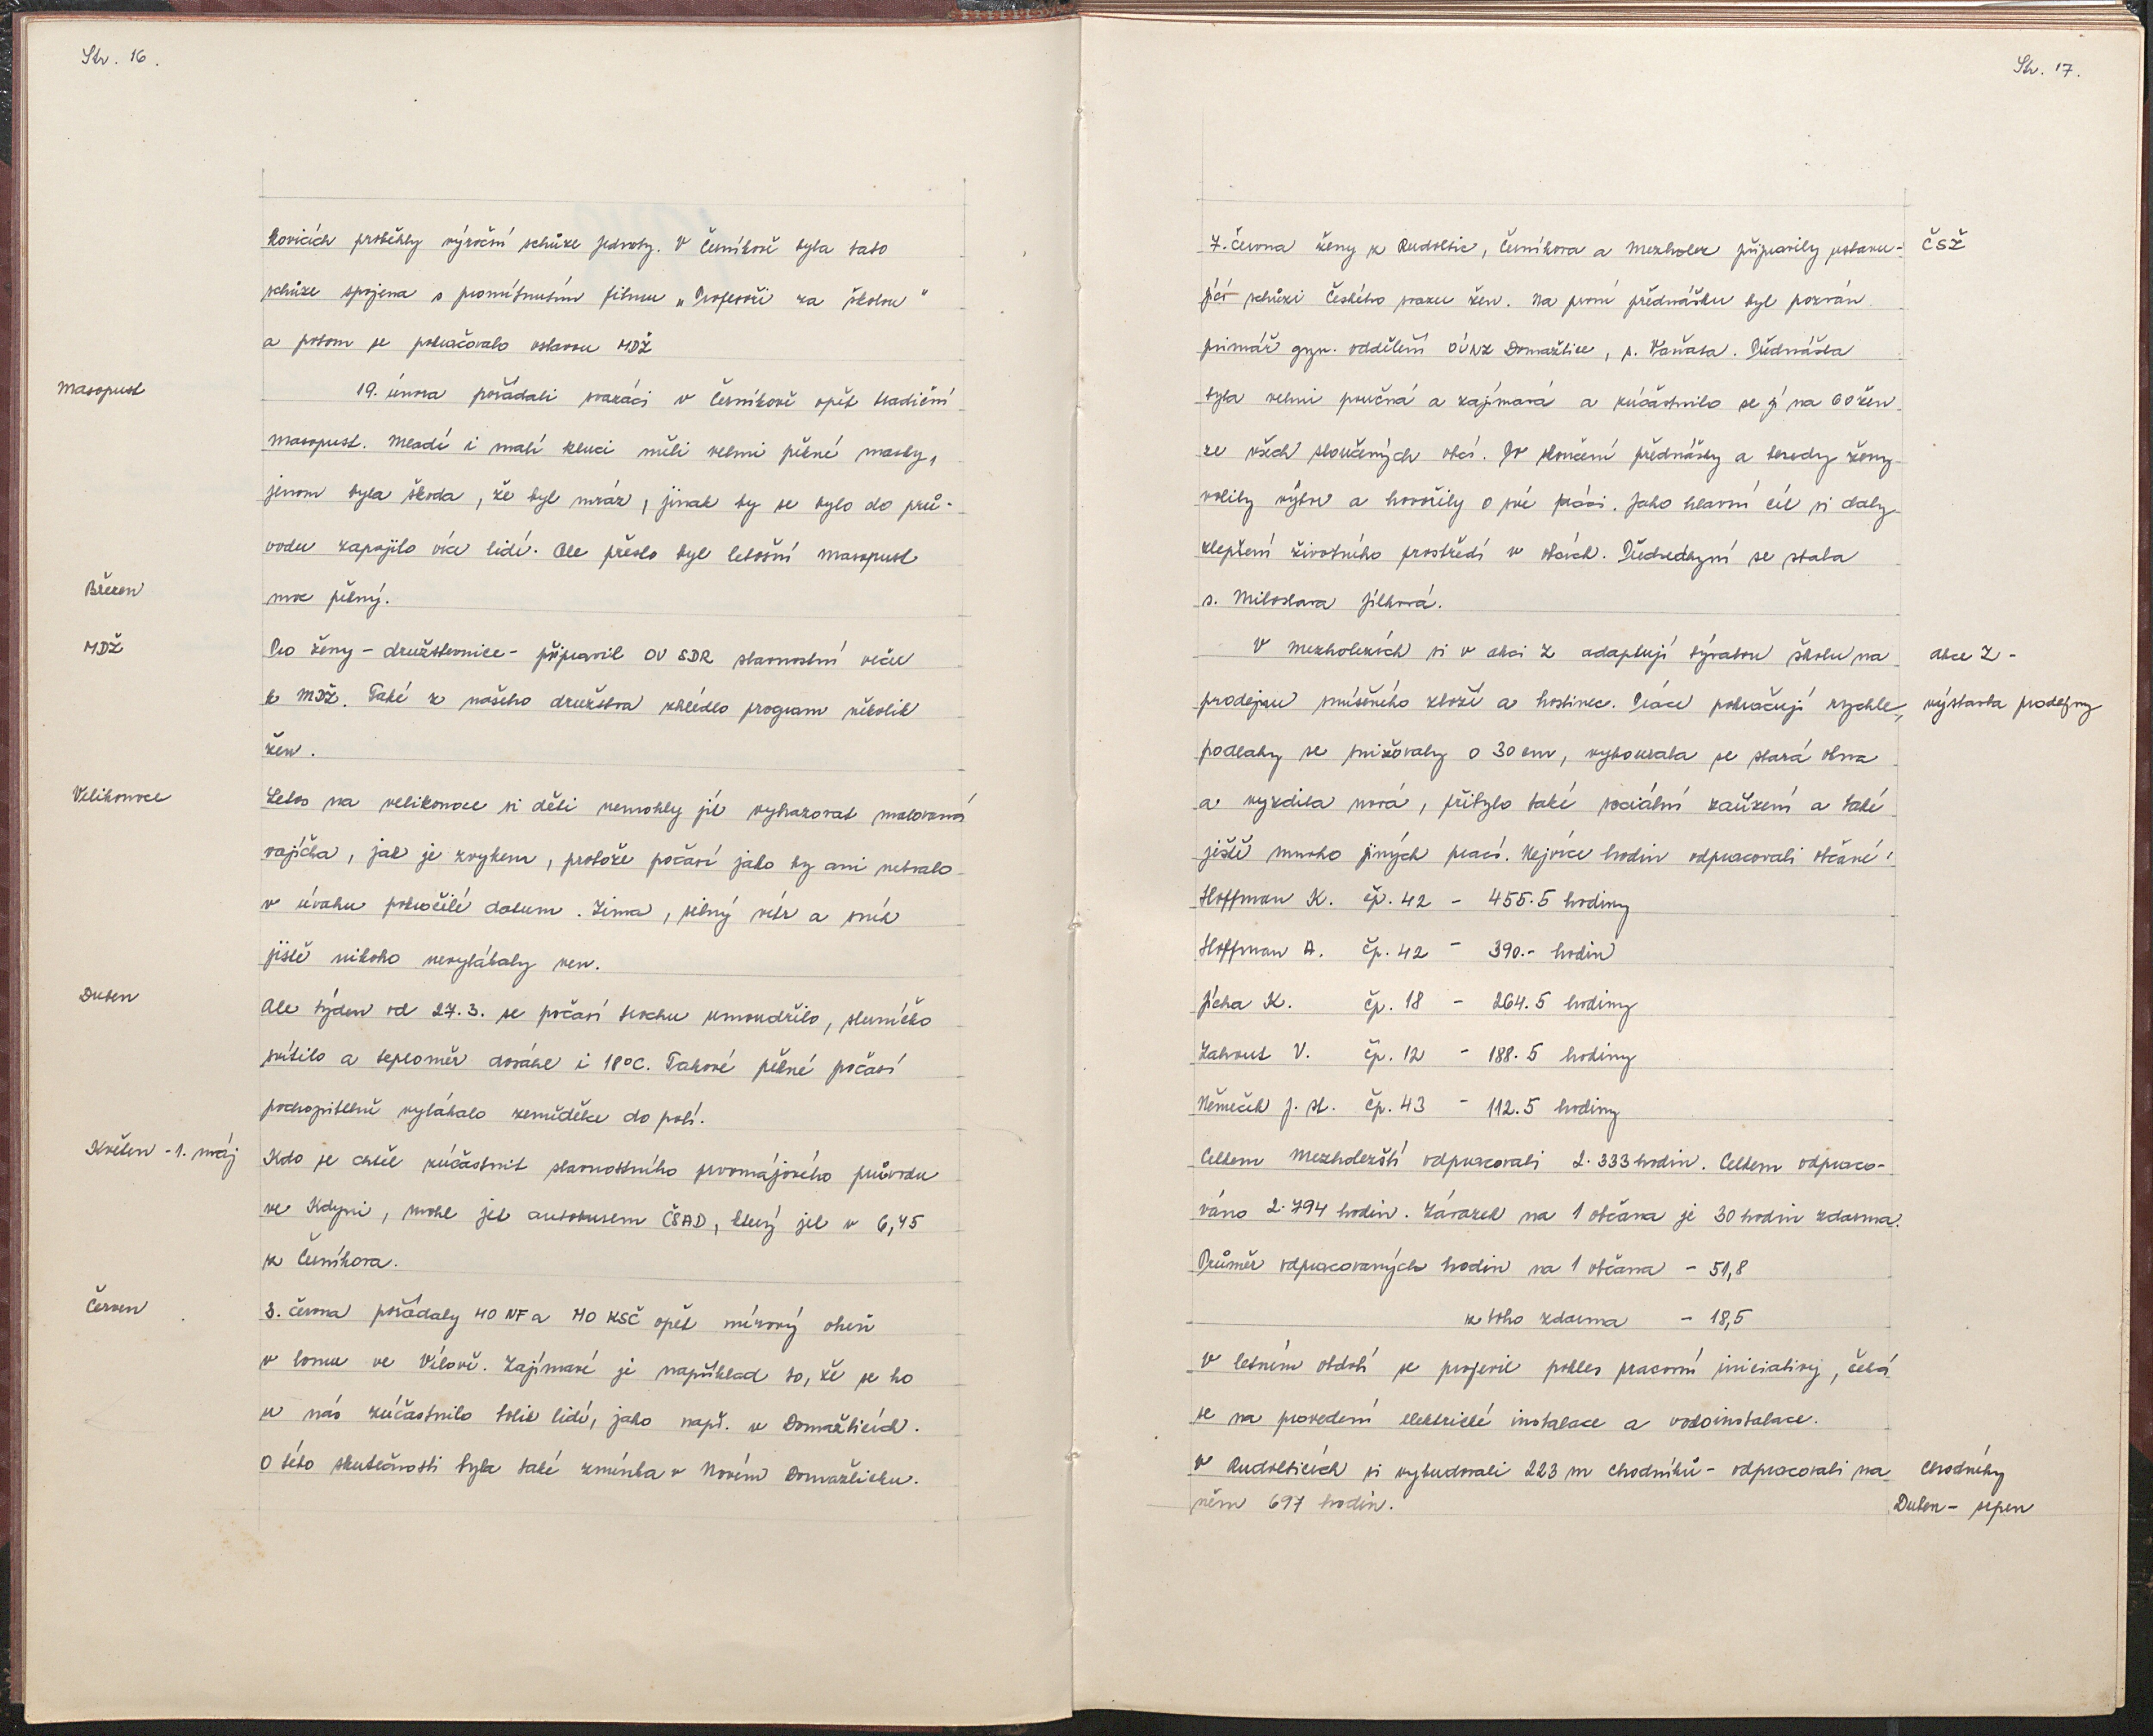 Str. 16.
kovicích proběhly výroční schůze jednoty. V Černíkově byla tato
schůze spojena s promítnutím filmu „Profesoři za školou"
a potom se pokračovalo oslavou MDŽ
Masopust
19. února pořádali svazáci v Černíkově opět tradiční
masopust. Mladí i malí kluci měli velmi pěkné masky,
jenom byla škoda, že byl mráz, jinak by se bylo do prů-
vodu zapojilo více lidí. Ale přesto byl letošní masopust
moc pěkný.
Březen
MDŽ
Pro ženy - družstevnice - připravil OV SDR slavnostní večer
k MDŽ. Také z našeho družstva zhlédlo program několik
žen.
Velikonoce
Letos na velikonoce si děti nemohly jít vymrskat malovaná
vajíčka, jak je zvykem, protože počasí jako by ani nebralo
v úvahu pokročilé datum. Zima, silný vítr a sníh
jistě nikoho nevylákaly ven.
Duben
Ale týden od 27.3. se počasí trochu umoudřilo, sluníčko
svítilo a teploměr dosáhl i 18°C. Takové pěkné počasí
pochopitelně vylákalo zemědělce do polí.
Květen - 1. máj
Kdo se chtěl zúčastnit slavnostního prvomájového průvodu
ve Kdyni, mohl jet autobusem ČSAD, který jel v 6,45
z Černíkova.
Červen
3. června pořádaly MO NF a MO KSČ opět mírový oheň
v lomu ve Vílově. Zajímavé je například to, že se ho
u nás zúčastnilo tolik lidí, jako např. v Domažlicích.
O této skutečnosti byla také zmínka v Novém Domažlicku.
Str. 17.
7. června ženy z Rudoltic, Černíkova a Mezholez připravily ustavu-
ČSŽ
jící schůzi Českého svazu žen. Na první přednášku byl pozván
primář gyn. oddělení OÚNZ Domažlice, p. Vaňata. Přednáška
byla velmi poučná a zajímavá a zúčastnilo se jí na 60 žen
ze všech sloučených obcí. Po skončení přednášky a besedy ženy
volily výbor a hovořily o své práci. Jako hlavní cíl si daly
zlepšení životního prostředí v obcích. Předsedkyní se stala
s. Miloslava Jílková.
V Mezholezích si v akci Z adaptují bývalou školu na
akce Z -
prodejnu smíšeného zboží a hostinec. Práce pokračují rychle,
výstavba prodejny
podlahy se snižovaly o 30 cm, vybourala se stará okna
a vyzdila nová, přibylo také sociální zařízení a také
ještě mnoho jiných prací. Nejvíce hodin odpracovali občané:
Hoffman K. čp. 42 - 455.5 hodiny
Hoffman A. čp. 42 - 390.- hodin
Jícha K. čp. 18 - 264.5 hodiny
Zahrut V. čp. 12 - 188.5 hodiny
Němeček J. st. čp. 43 - 112.5 hodiny
Celkem Mezholezští odpracovali 2.333 hodin. Celkem odpraco-
váno 2.794 hodin. Závazek na 1 občana je 30 hodin zdarma.
Průměr odpracovaných hodin na 1 občana - 51,8
z toho zdarma - 18,5
V letním období se projevil pokles pracovní iniciativy, čeká
se na provedení elektrické instalace a vodoinstalace.
V Rudolticích si vybudovali 223 m chodníků - odpracovali na
Chodníky
něm 697 hodin.
Duben - srpen